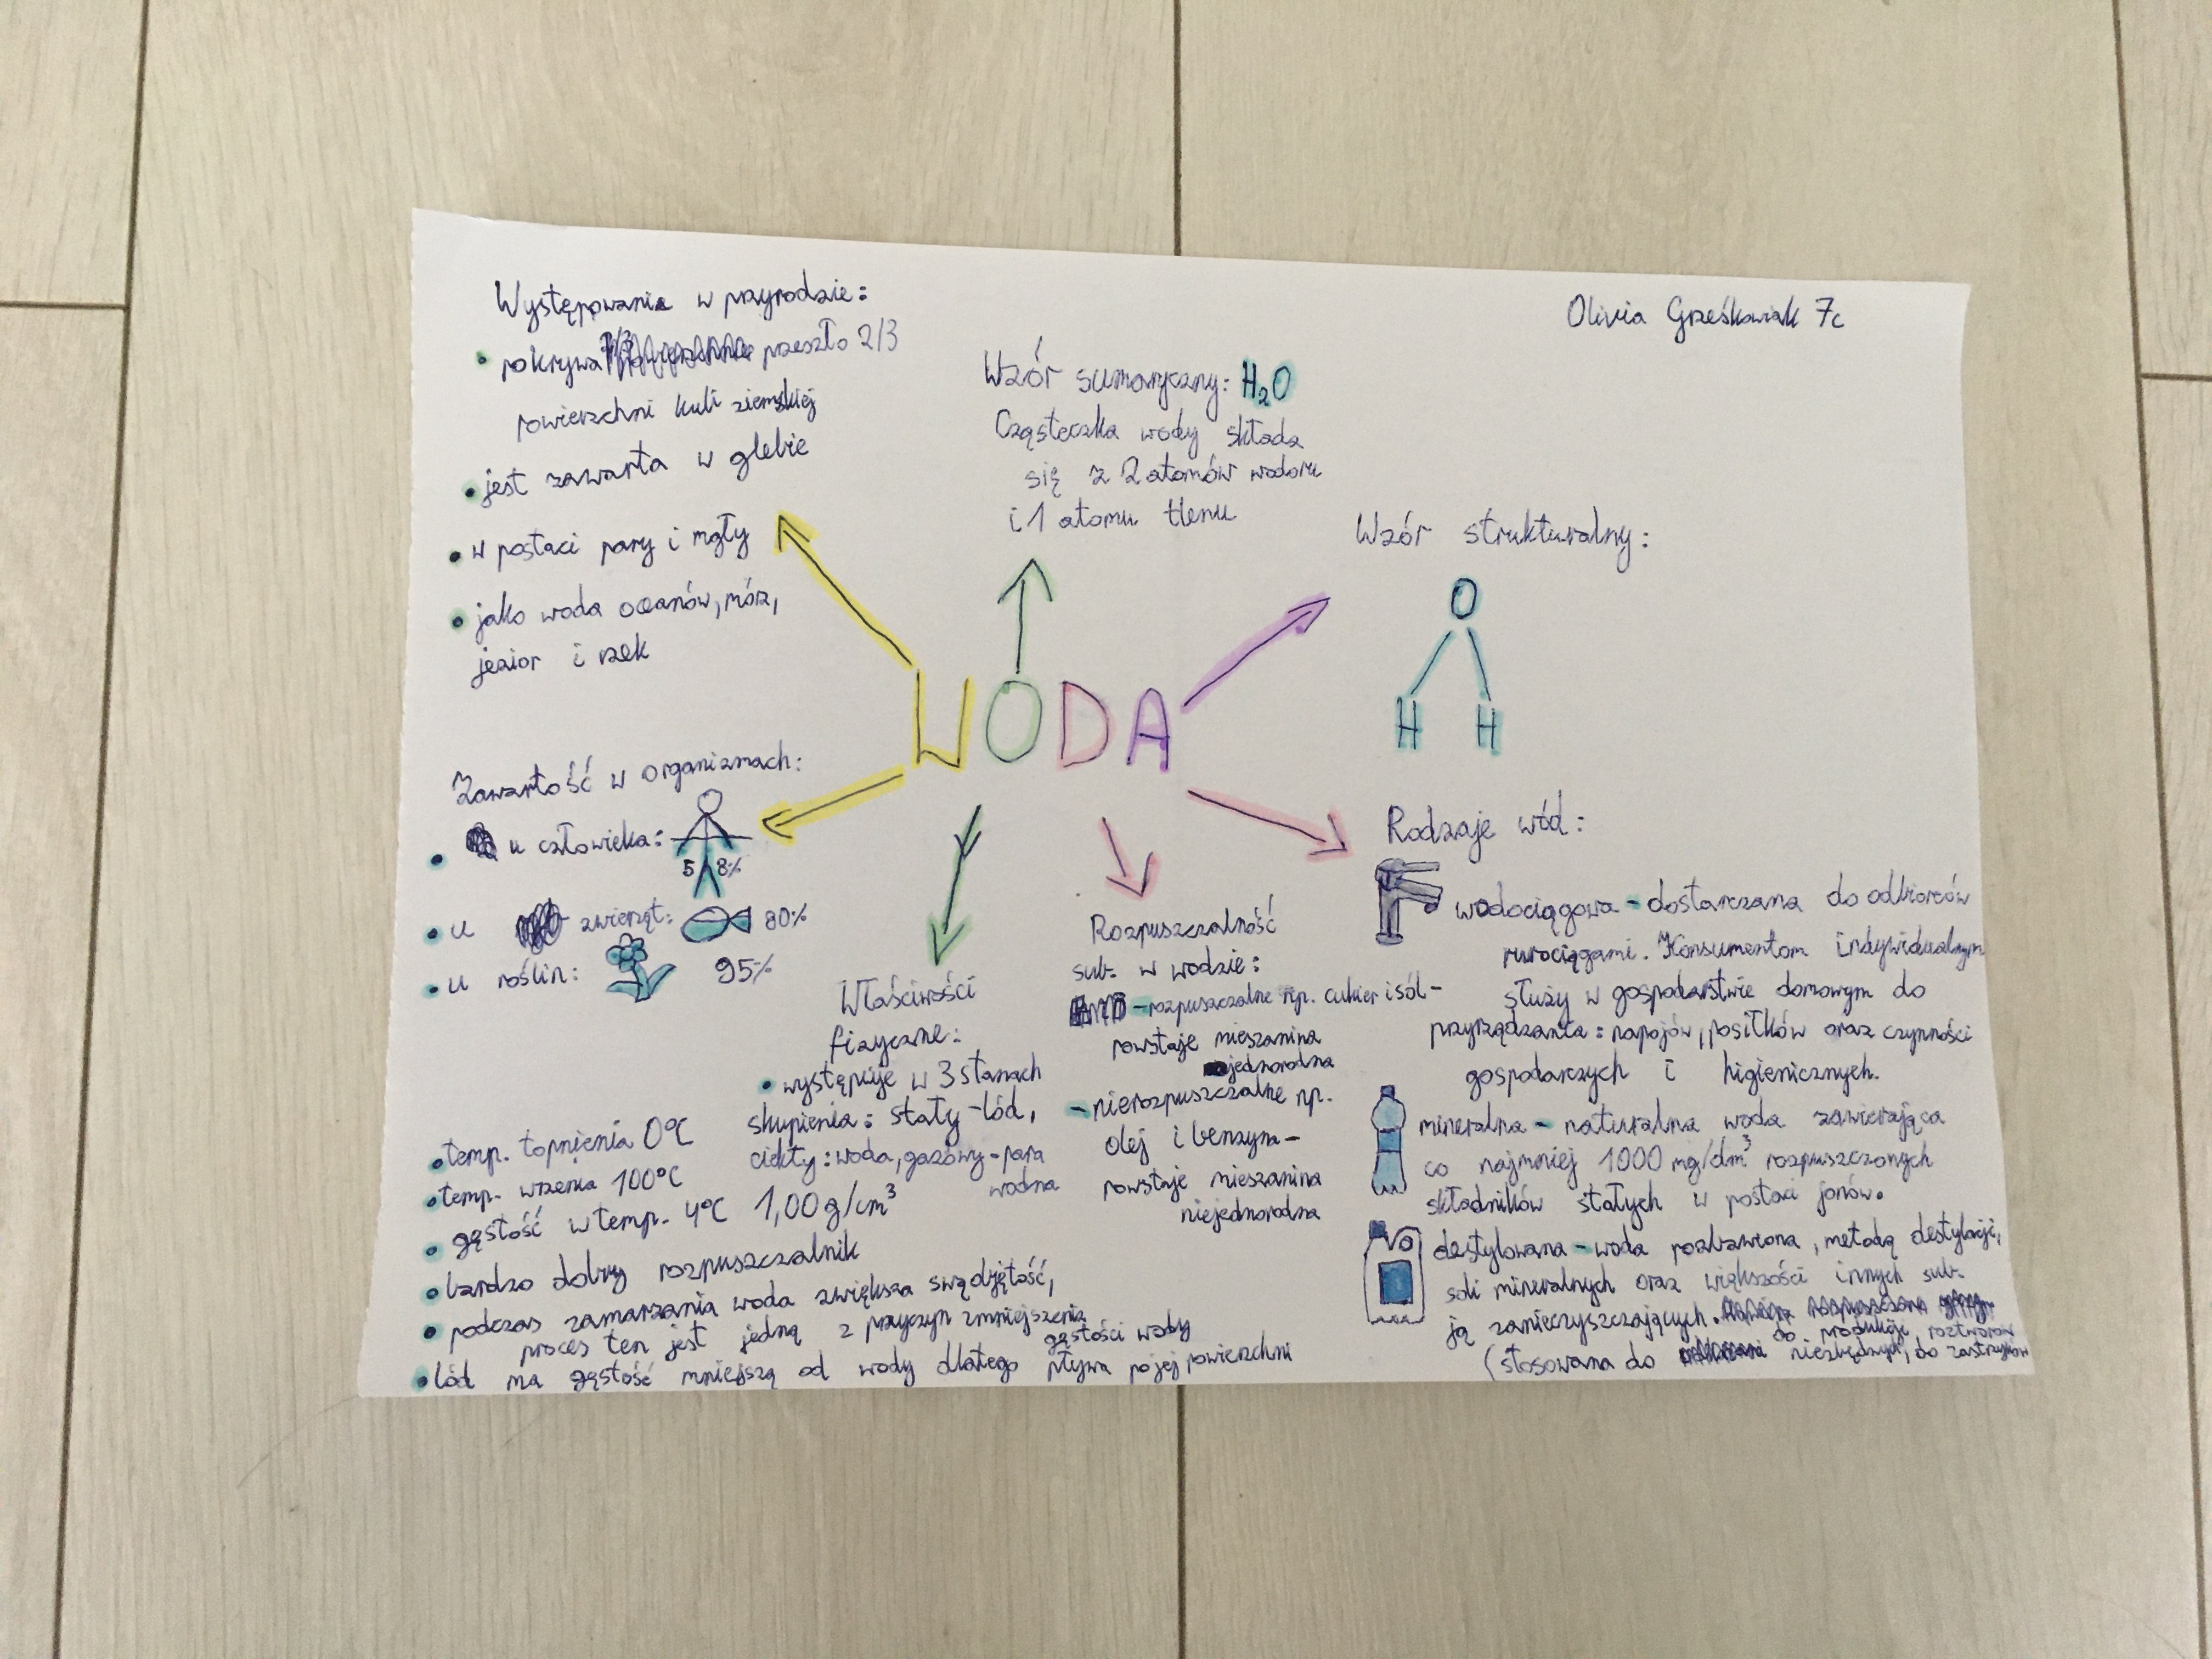 Olivia Greśkowiak 7c
Występowanie w przyrodzie:
• pokrywa przeszło 2/3
powierzchni kuli ziemskiej
• jest zawarta w glebie
• w postaci pary i mgły
• jako woda oceanów, mórz,
jezior i rzek
Wzór sumaryczny: H₂O
Cząsteczka wody składa
się z 2 atomów wodoru
i 1 atomu tlenu
Wzór strukturalny:
O
H H
WODA
Zawartość w organizmach:
• u człowieka:
58%
• u zwierząt: 80%
• u roślin: 95%
Właściwości
fizyczne:
• występuje w 3 stanach
skupienia: stały - lód,
ciekły: woda, gazowy - para
wodna
• temp. topnienia 0°C
• temp. wrzenia 100°C
• gęstość w temp. 4°C 1,00 g/cm³
• bardzo dobry rozpuszczalnik
• podczas zamarzania woda zwiększa swą objętość,
proces ten jest jedną z przyczyn zmniejszenia
gęstości wody
• lód ma gęstość mniejszą od wody dlatego pływa po jej powierzchni
Rozpuszczalność
sub. w wodzie:
- rozpuszczalne np. cukier i sól -
powstaje mieszanina
jednorodna
- nierozpuszczalne np.
olej i benzyna -
powstaje mieszanina
niejednorodna
Rodzaje wód:
wodociągowa - dostarczana do odbiorców
rurociągami. Konsumentom indywidualnym
służy w gospodarstwie domowym do
przyrządzania: napojów, posiłków oraz czynności
gospodarczych i higienicznych.
mineralna - naturalna woda zawierająca
co najmniej 1000 mg/dm³ rozpuszczonych
składników stałych w postaci jonów.
destylowana - woda pozbawiona, metodą destylacji,
soli mineralnych oraz większości innych sub.
ją zanieczyszczających.
do produkcji roztworów
(stosowana do niezbędnych, do zastrzyków